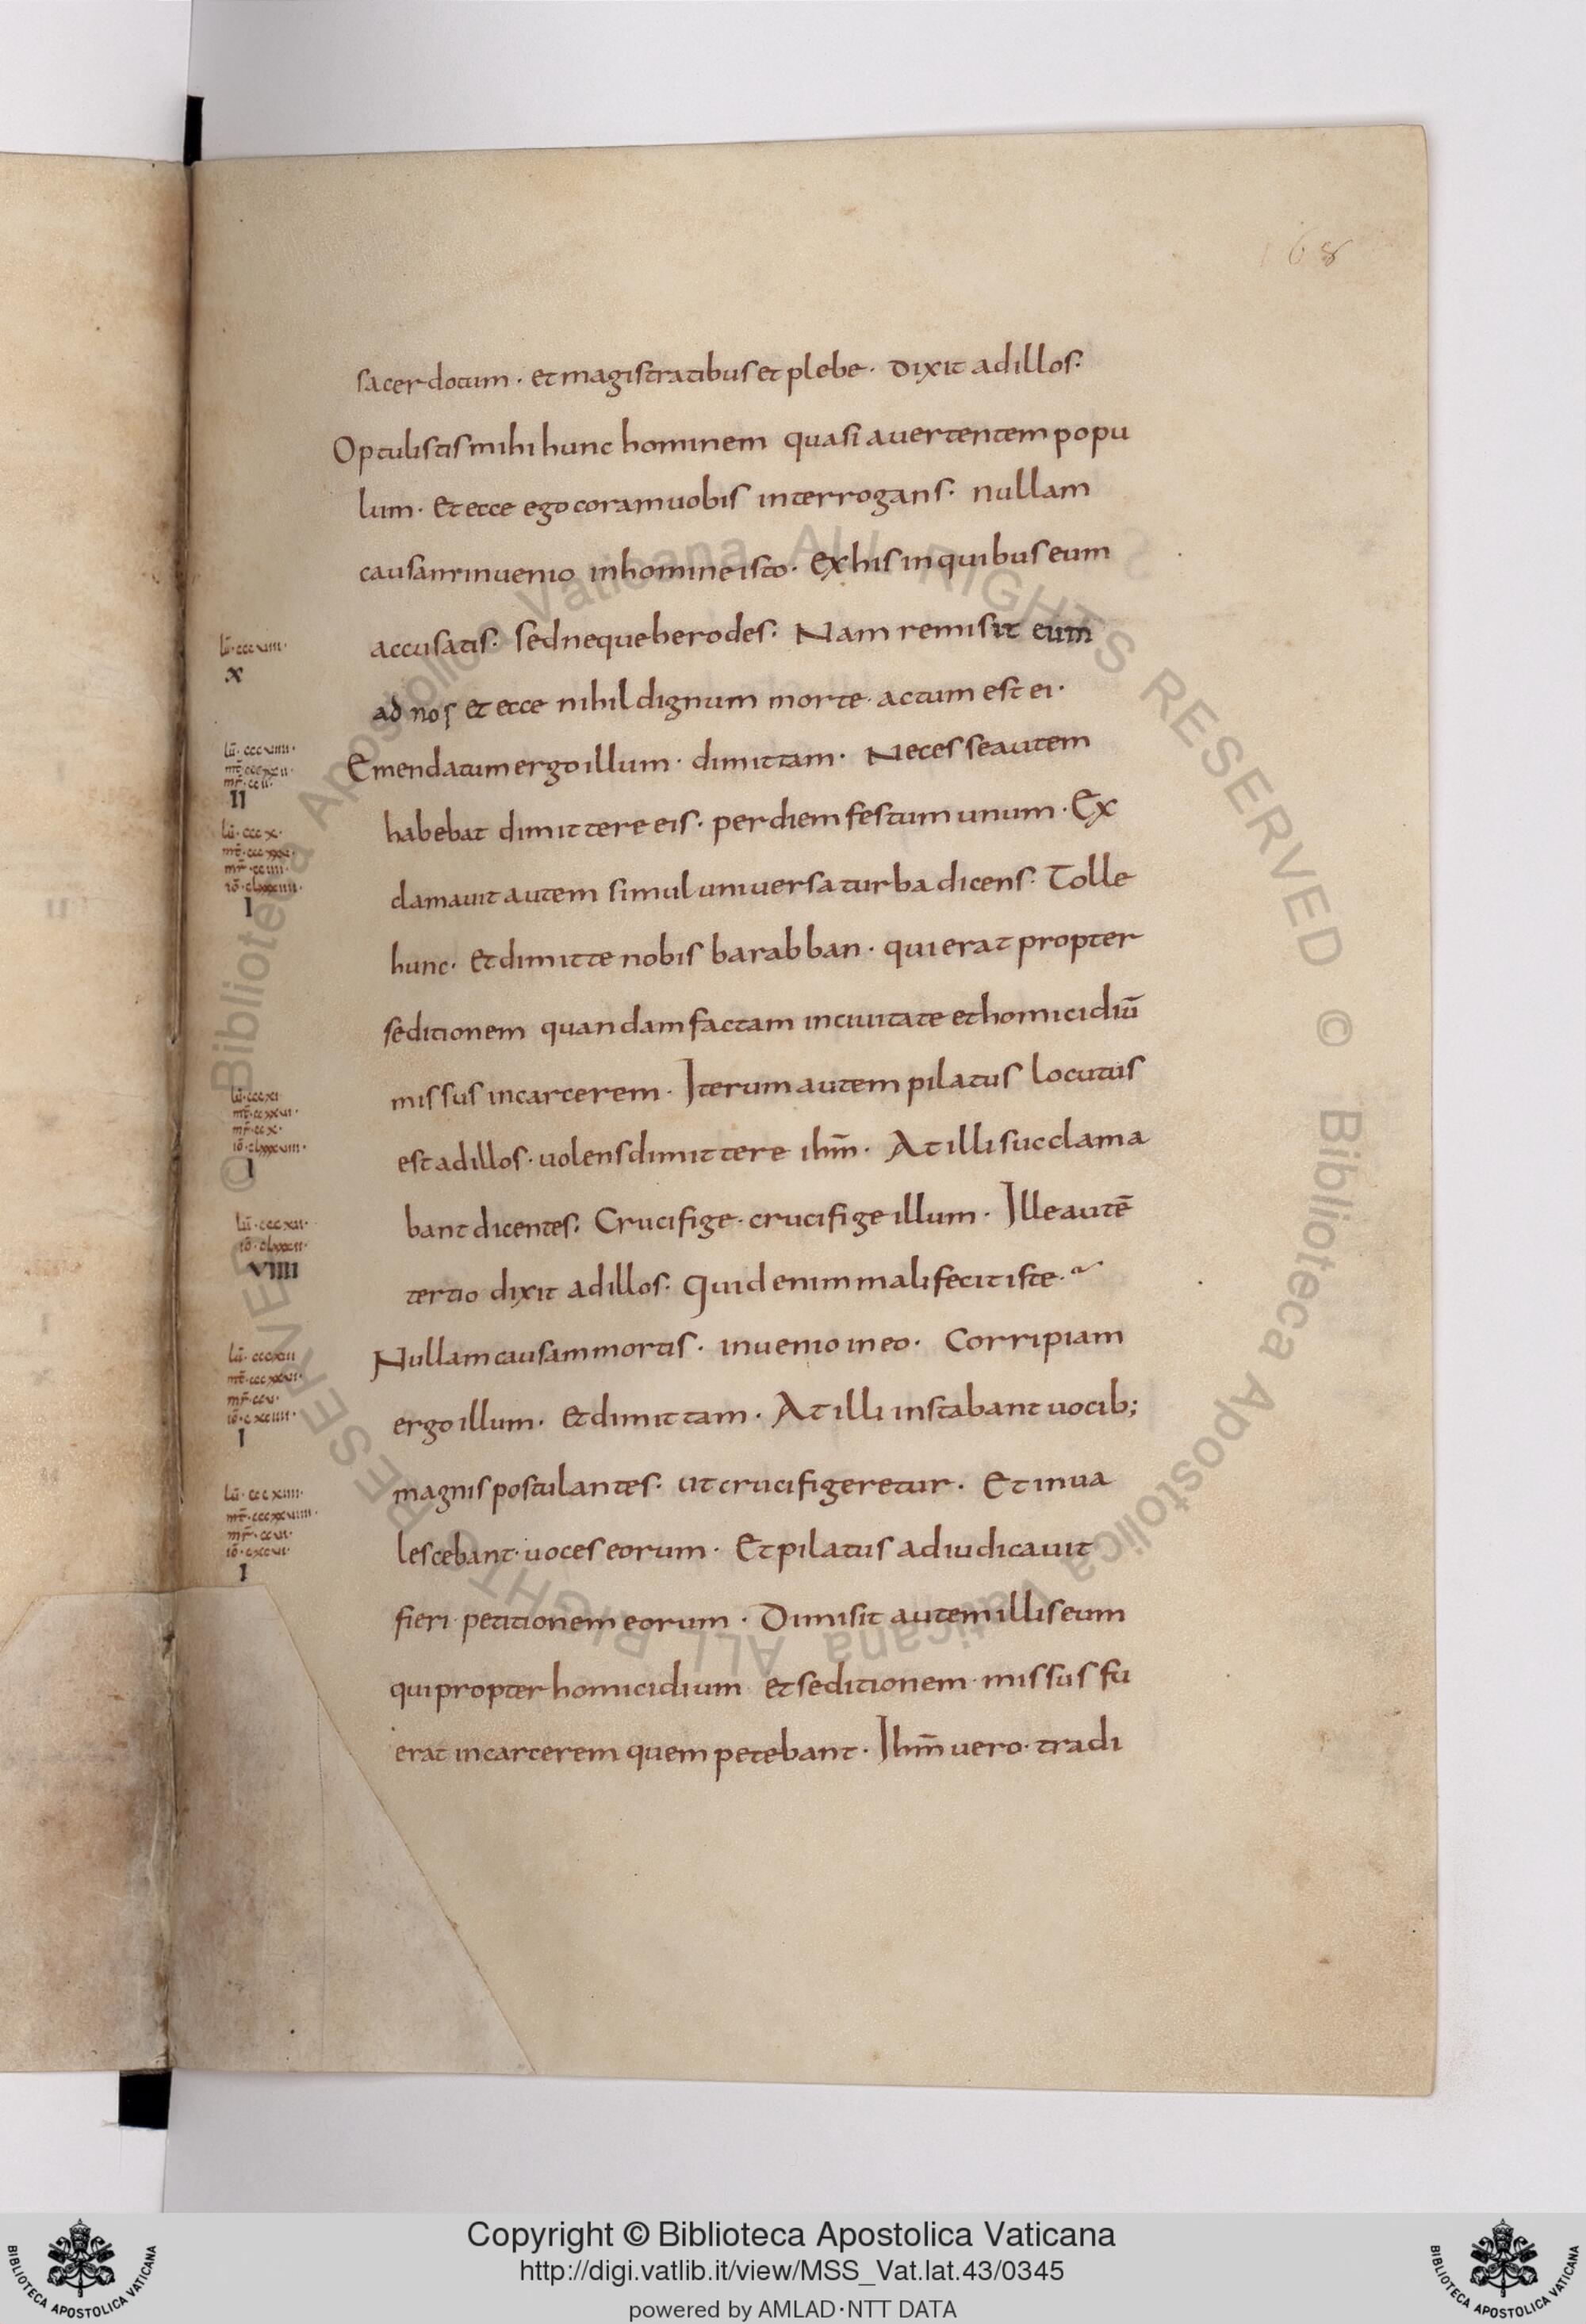 168
sacerdotum · et magistratibus et plebe · Dixit ad illos:
Optulistis mihi hunc hominem quasi auertentem popu
lum · Et ecce ego coram uobis interrogans · nullam
causam inuenio in homine isto · Ex his in quibus eum
lū · cccviii ·
accusatis · sed neque herodes : Nam remisit eum
x
ad nos et ecce nihil dignum morte · actum est ei ·
lū · cccviiii ·
mr̄ · ccii ·
Emendatum ergo illum · dimittam · Necesse autem
II
lū · cccx ·
mr̄ · cciiii ·
habebat dimittere eis · per diem festum unum · Ex
clamauit autem simul uniuersa turba dicens · Tolle
I
hunc · Et dimitte nobis barabban · qui erat propter
seditionem quandam factam in ciuitate et homicidiū
lū · cccxi ·
mr̄ · ccx ·
missus in carcerem · Iterum autem pilatus locutus
est ad illos · uolens dimittere ihm̄ · At illi succlama
I
bant dicentes : Crucifige · crucifige illum · Ille autē
lū · cccxii ·
VIIII
tertio dixit ad illos · Quid enim mali fecit iste ·
Nullam causam mortis · inuenio in eo · Corripiam
lū · cccxiii
mr̄ · ccv ·
ergo illum · Et dimittam · At illi instabant uocib;
I
magnis postulantes · ut crucifigeretur · Et inua
lū · cccxiiii ·
mr̄ · ccvi ·
lescebant · uoces eorum · Et pilatus adiudicauit
I
fieri · petitionem eorum · Dimisit autem illis eum
qui propter homicidium et seditionem · missus fu
erat in carcerem quem petebant · Ihm̄ uero · tradi
© Biblioteca Apostolica Vaticana ALL RIGHTS RESERVED © Biblioteca Apostolica Vaticana ALL RIGHTS RESERVED
Copyright © Biblioteca Apostolica Vaticana
http://digi.vatlib.it/view/MSS_Vat.lat.43/0345
powered by AMLAD·NTT DATA
BIBLIOTECA APOSTOLICA VATICANA
BIBLIOTECA APOSTOLICA VATICANA